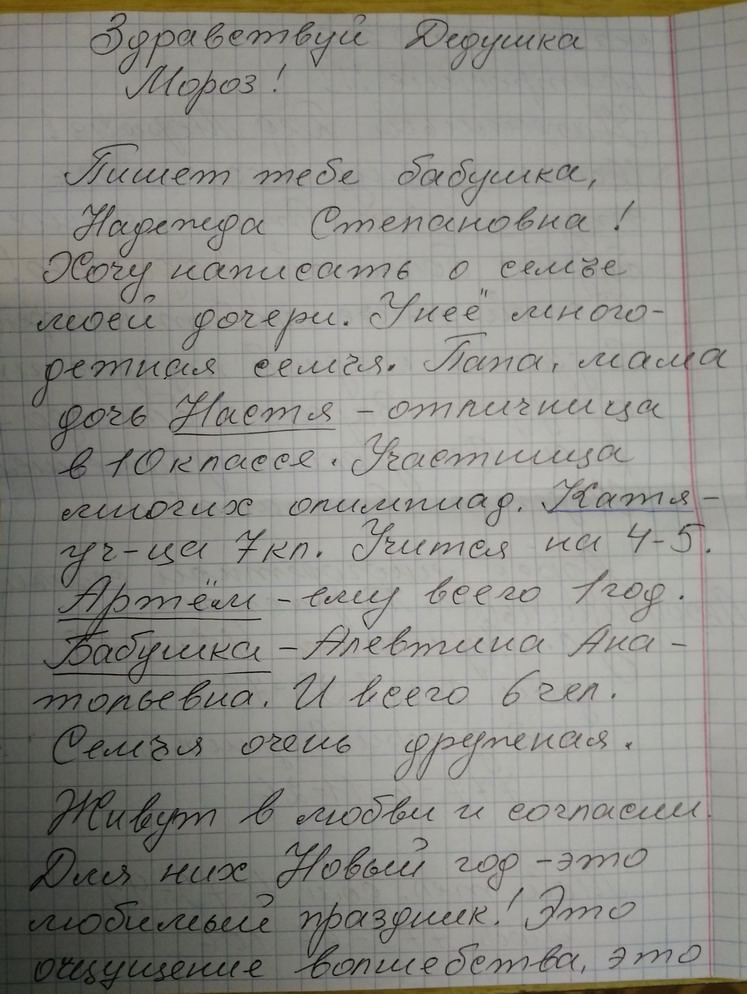 Здравствуй Дедушка
Мороз!
Пишет тебе бабушка,
Надежда Степановна!
Хочу написать о семье
моей дочери. У неё много-
детная семья. Папа, мама
дочь Настя - отличница
в 10 классе. Участница
многих олимпиад. Катя-
уч-ца 7 кл. Учится на 4-5.
Артём - ему всего 1 год.
Бабушка - Алевтина Ана-
тольевна. И всего 6 чел.
Семья очень дружная.
Живут в любви и согласии.
Для них Новый год - это
любимый праздник! Это
ощущение волшебства, это